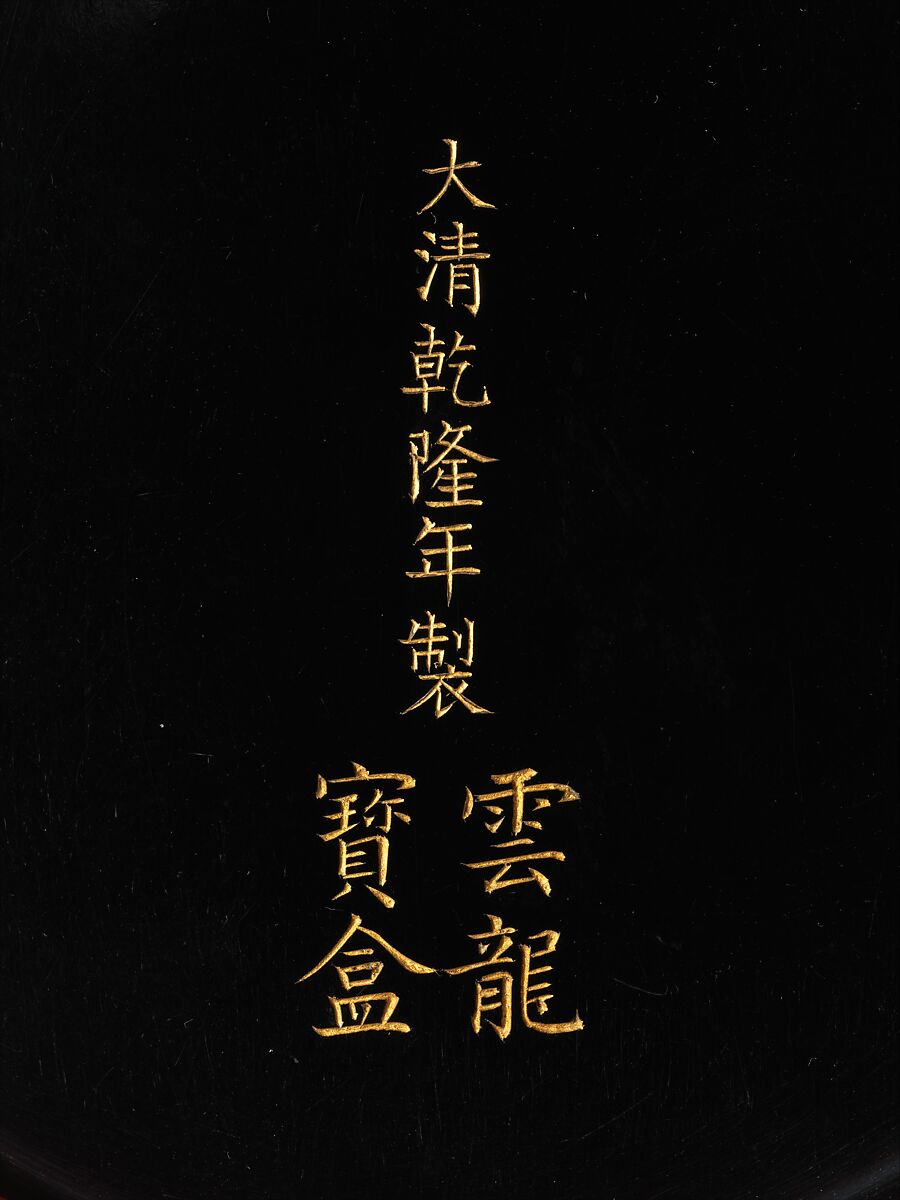 大清乾隆年製
雲龍
寶盒